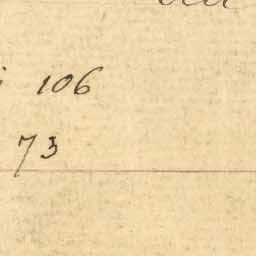 106
73